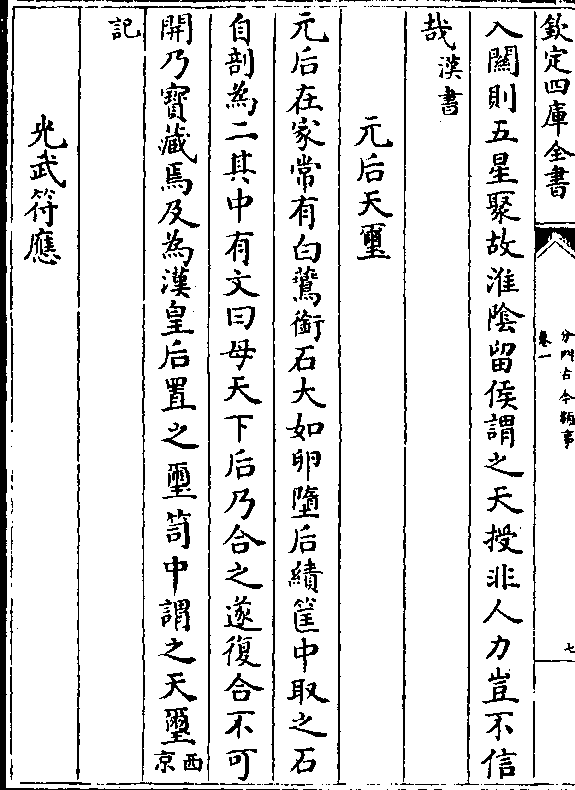 欽定四庫全書
分門古今類事
卷一
七
入關則五星聚故淮陰留侯謂之天授非人力豈不信
哉漢書
元后天璽
元后在家常有白鷰銜石大如卵墮后績筐中取之石
自剖為二其中有文曰母天下后乃合之遂復合不可
開乃寶藏焉及為漢皇后置之璽笥中謂之天璽西京
記
光武符應